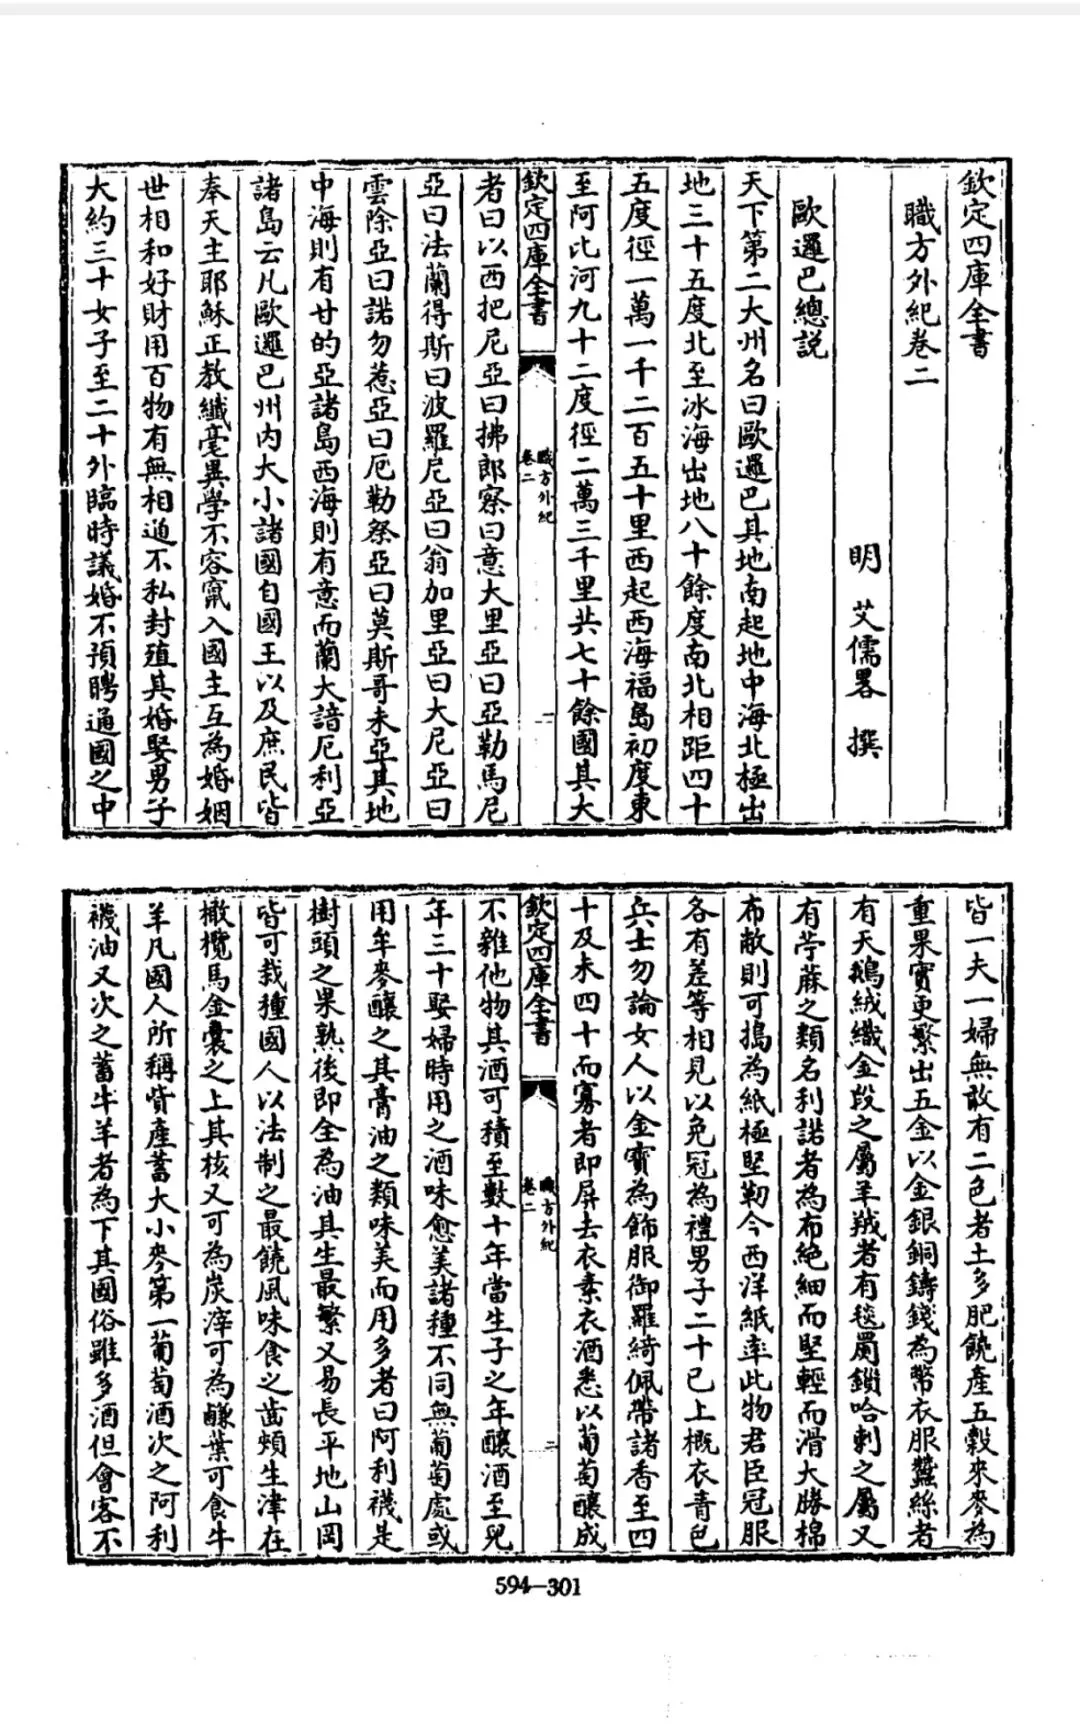 欽定四庫全書
職方外紀卷二
明 艾儒畧 撰
歐邏巴總説
天下第二大州名曰歐邏巴其地南起地中海北極出
地三十五度北至冰海出地八十餘度南北相距四十
五度徑一萬一千二百五十里西起西海福島初度東
至阿比河九十二度徑二萬三千里共七十餘國其大
欽定四庫全書
職方外紀
卷二
一
者曰以西把尼亞曰拂郎察曰意大里亞曰亞勒馬尼
亞曰法蘭得斯曰波羅尼亞曰翁加里亞曰大尼亞曰
雲除亞曰諾勿惹亞曰厄勒祭亞曰莫斯哥未亞其地
中海則有甘的亞諸島西海則有意而蘭大諳厄利亞
諸島云凡歐邏巴州内大小諸國自國王以及庶民皆
奉天主耶穌正教纖毫異學不容竄入國主互為婚姻
世相和好財用百物有無相通不私封殖其婚娶男子
大約三十女子至二十外臨時議婚不預聘通國之中
皆一夫一婦無敢有二色者土多肥饒產五穀來麥為
重果實更繁出五金以金銀銅鑄錢為幣衣服蠶絲者
有天鵝絨織金段之屬羊羢者有毯罽鎖哈剌之屬又
有苧蔴之類名利諾者為布絶細而堅輕而滑大勝棉
布敝則可搗為紙極堅韌今西洋紙率此物君臣冠服
各有差等相見以免冠為禮男子二十已上概衣青色
兵士勿論女人以金寳為飾服御羅綺佩帶諸香至四
十及未四十而寡者即屏去衣素衣酒悉以葡萄釀成
欽定四庫全書
職方外紀
卷二
二
不雜他物其酒可積至數十年當生子之年釀酒至兒
年三十娶婦時用之酒味愈美諸種不同無葡萄處或
用牟麥釀之其膏油之類味美而用多者曰阿利襪是
樹頭之果熟後即全為油其生最繁又易長平地山岡
皆可栽種國人以法制之最饒風味食之齒頰生津在
橄欖馬金囊之上其核又可為炭滓可為鹻葉可食牛
羊凡國人所稱貲產蓄大小麥第一葡萄酒次之阿利
襪油又次之蓄牛羊者為下其國俗雖多酒但會客不
594—301